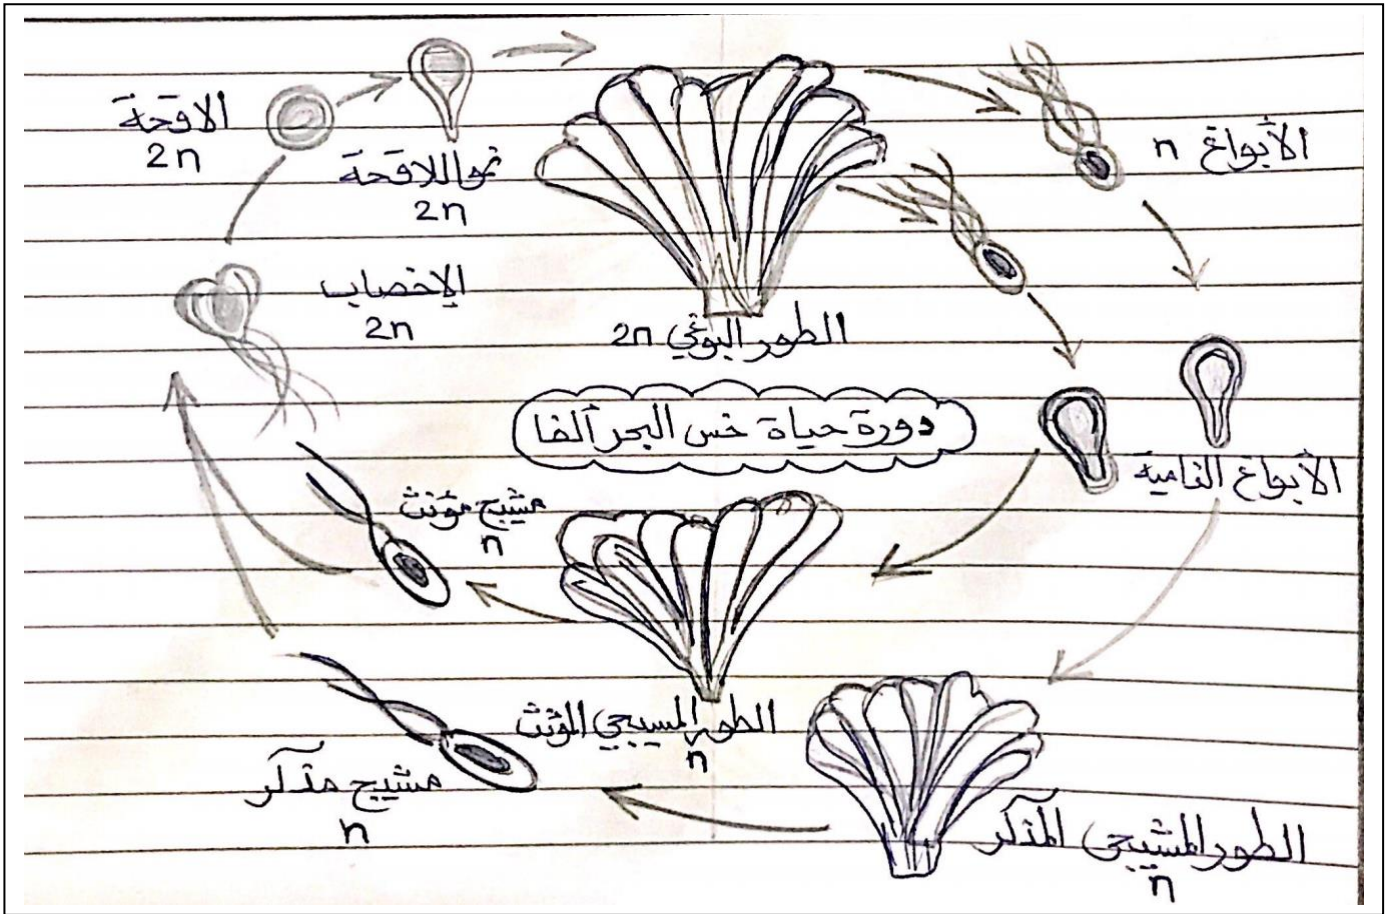 الاقحة
2n
نمو اللاقحة
2n
الأبواغ n
الإخصاب
2n
الطور البوغي 2n
دورة حياة خس البحر ألفا
الأبواغ النامية
مشيج مؤنث
n
الطور المسيجي المؤنث
n
مشيج مذكر
n
الطور المشيجي المذكر
n